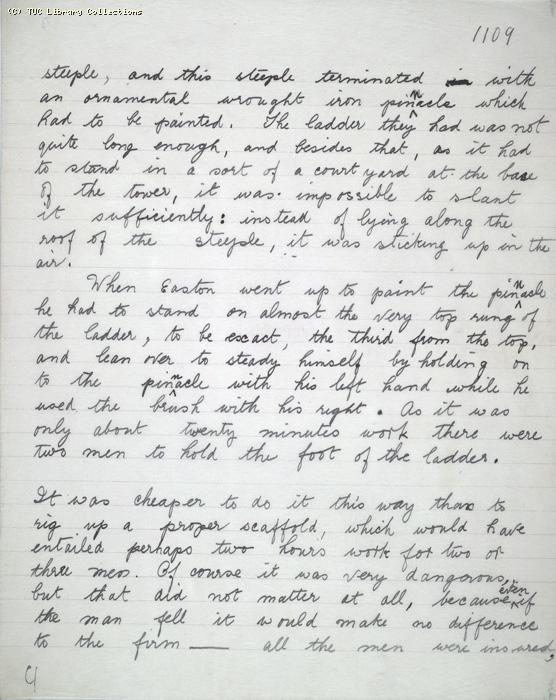 (C) TUC Library Collections
1109
steeple, and this steeple terminated in with
an ornamental wrought iron pinnacle which
had to be painted. The ladder they had was not
quite long enough, and besides that, as it had
to stand in a sort of a court yard at the base
of the tower, it was impossible to slant
it sufficiently: instead of lying along the
roof of the steeple, it was sticking up in the
air.
When Easton went up to paint the pinnacle
he had to stand on almost the very top rung of
the ladder, to be exact, the third from the top,
and lean over to steady himself by holding on
to the pinnacle with his left hand while he
used the brush with his right. As it was
only about twenty minutes work there were
two men to hold the foot of the ladder.
It was cheaper to do it this way than to
rig up a proper scaffold, which would have
entailed perhaps two hours work for two or
three men. Of course it was very dangerous,
but that did not matter at all, because even if
the man fell it would make no difference
to the firm — all the men were insured,